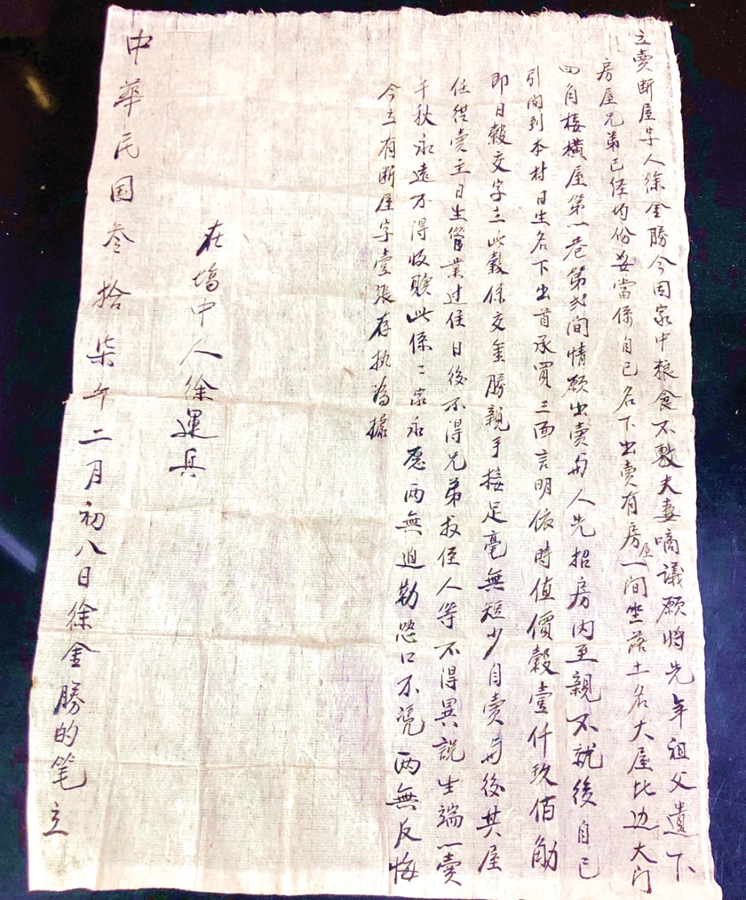 立賣断屋字人徐金勝今因家中粮食不敷夫妻嘀議願将先年祖父遺下
房屋兄弟已经均份妥當係自己名下出賣有房屋一間坐落土名大屋北边大门
四角楼横屋第一巷第弍间情願出賣與人先招房内至親不就後自己
引问到本村日生名下出首承買三面言明依時值價穀壹仟玖佰觔
即日穀交字立此穀係交金勝親手接足毫無短少自賣與後其屋
任從賣主日生管業过住日後不得兄弟叔侄人等不得異説生端一賣
千秋永遠不得收贖此係二家永愿两無迫勒恐口不凴两無反悔
今立有断屋字壹張存执為據
在塲中人徐運興
中華民国叁拾柒年二月初八日徐金勝的笔立